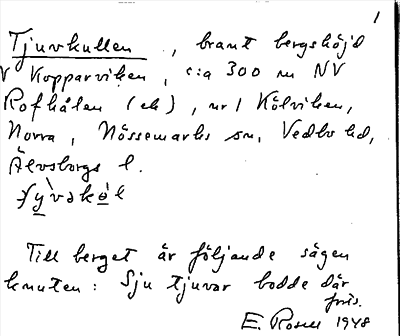 1
Tjuvkullen, brant bergshöjd
V Kopparviken, c:a 300 m NV
Rofhålan (ek), nr 1 Kölviken,
Norra, Nössemarks sn, Vedbo hd,
Älvsborgs l.
Till berget är följande sägen
knuten: Sju tjuvar bodde där
förr.
E. Rosell 1948